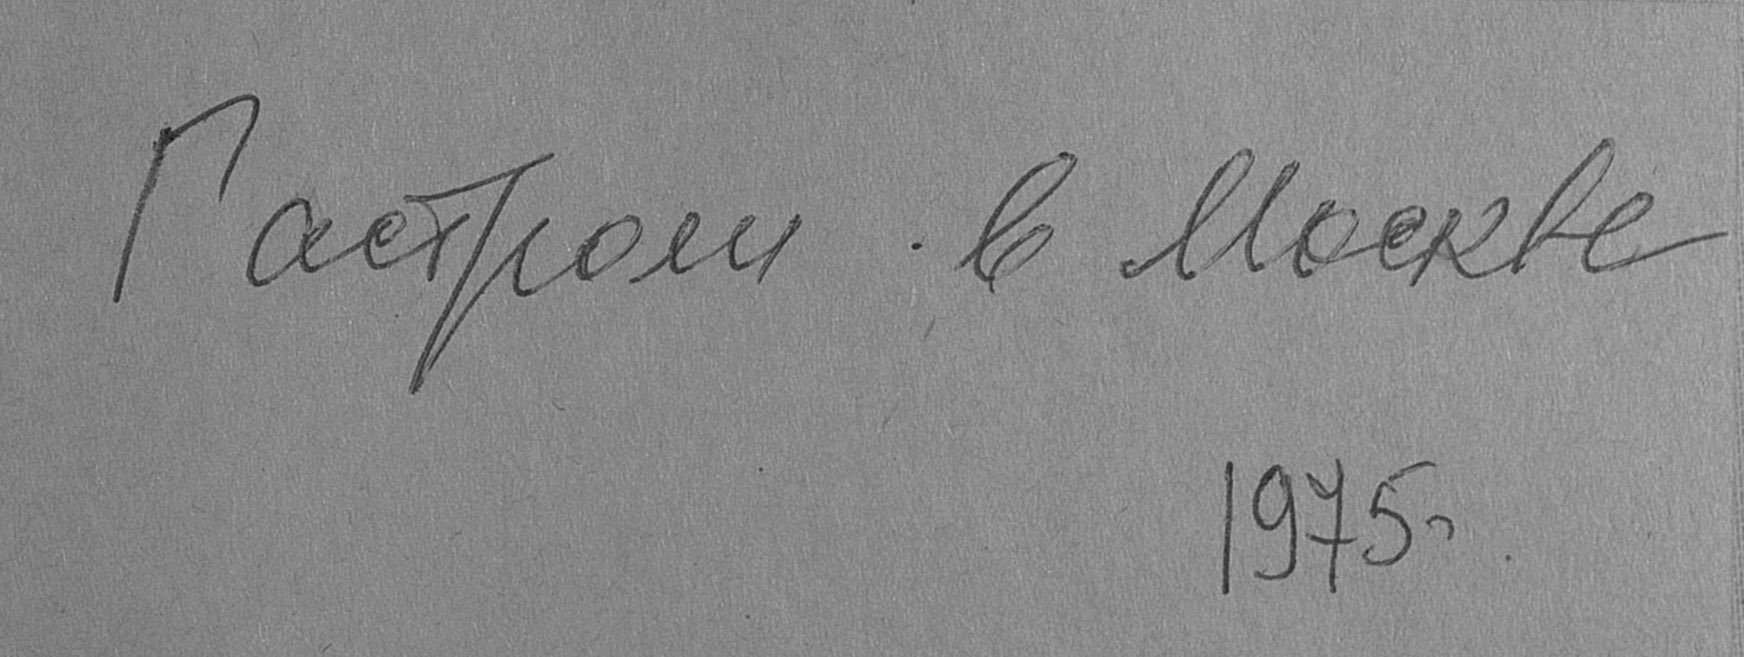 Гастроли в Москве
1975г.